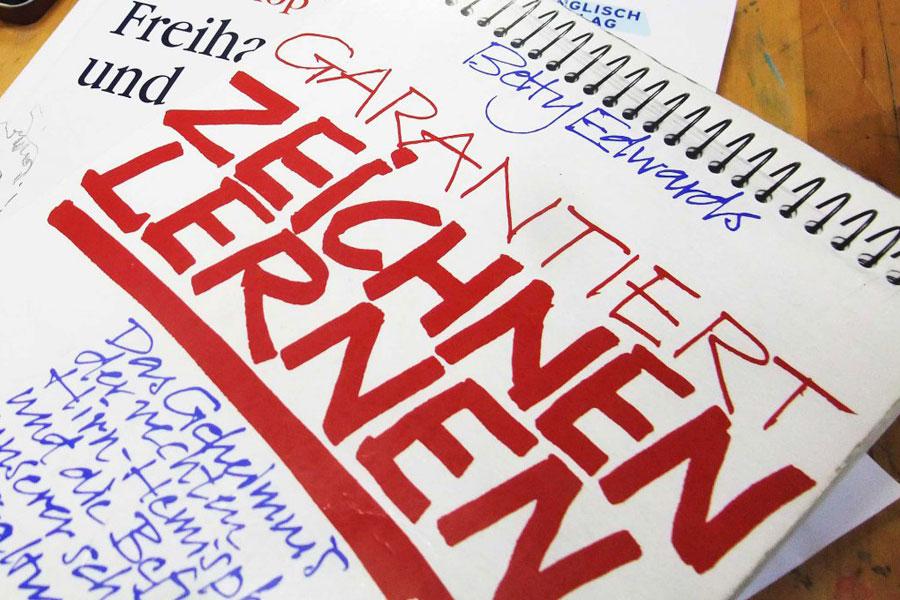 Freiha
und
NGLISCH
LAG
Betty Edwards
GARANTIERT
ZEICHNEN
LERNEN
Das Geheimnis
der rechten
Hirn-Hemisph
und die Bef
unserer sch